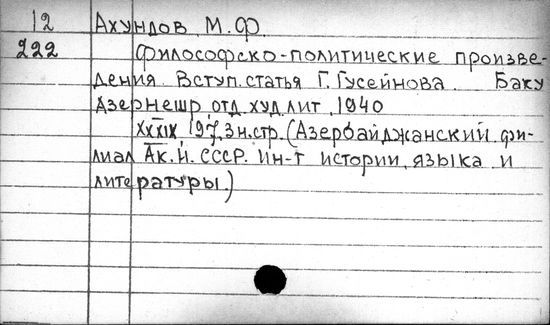 12 Ахундов М.Ф.
222 Философско-политические произве-
дения. Вступ. статья Г. Гусейнова. Баку
Азернешр, отд. худ. лит, 1940
XXXIX, 197, 3 н. стр. (Азербайджанский фи-
лиал Ак. Н. СССР. Ин-т истории, языка и
литературы.)